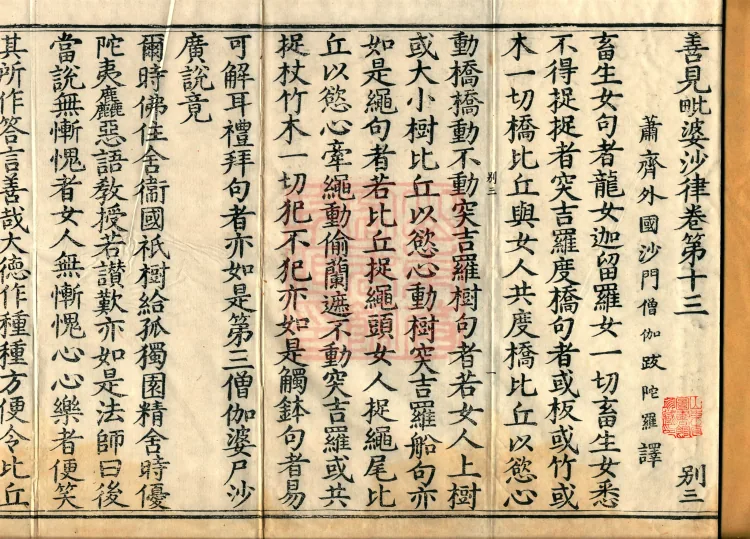 善見毗婆沙律卷第十三 別三
蕭齊外國沙門僧伽跋陀羅譯
畜生女句者龍女迦留羅女一切畜生女悉
不得捉捉者突吉羅度橋句者或板或竹或
木一切橋比丘與女人共度橋比丘以慾心
動橋橋動不動突吉羅樹句者若女人上樹
或大小樹比丘以慾心動樹突吉羅船句亦
如是繩句者若比丘捉繩頭女人捉繩尾比
丘以慾心牽繩動偷蘭遮不動突吉羅或共
捉杖竹木一切犯不犯亦如是觸鉢句者易
可解耳禮拜句者亦如是第三僧伽婆尸沙
廣說竟
爾時佛住舍衞國祇樹給孤獨園精舍時優
陀夷麤惡語教授若讃歎亦如是法師曰後
當說無慚愧者女人無慚愧心心樂者便笑
其所作答言善哉大德作種種方便令比丘
別三
一